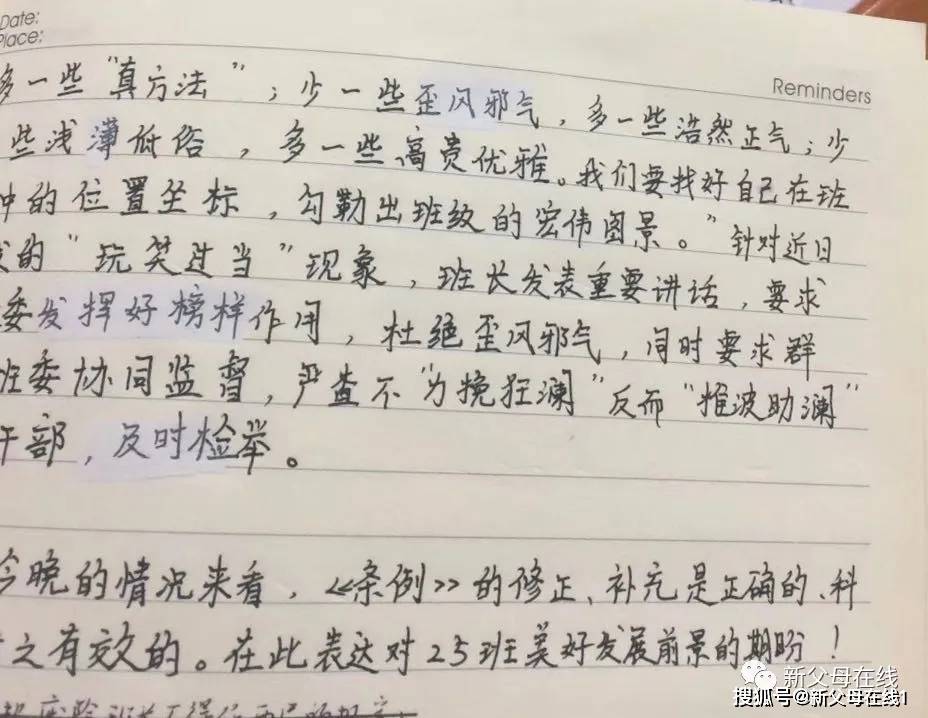 Date:
Place:
Reminders
多一些“真方法”；少一些歪风邪气，多一些浩然正气；少
些浅薄低俗，多一些高贵优雅。我们要找好自己在班
中的位置坐标，勾勒出班级的宏伟图景。”针对近日
的“玩笑过当”现象，班长发表重要讲话，要求
委发挥好榜样作用，杜绝歪风邪气，同时要求群
班委协同监督，严查不“力挽狂澜”反而“推波助澜”
干部，及时检举。
今晚的情况来看，《条例》的修正、补充是正确的、科
之有效的。在此表达对25班美好发展前景的期盼！
新父母在线
搜狐号@新父母在线1